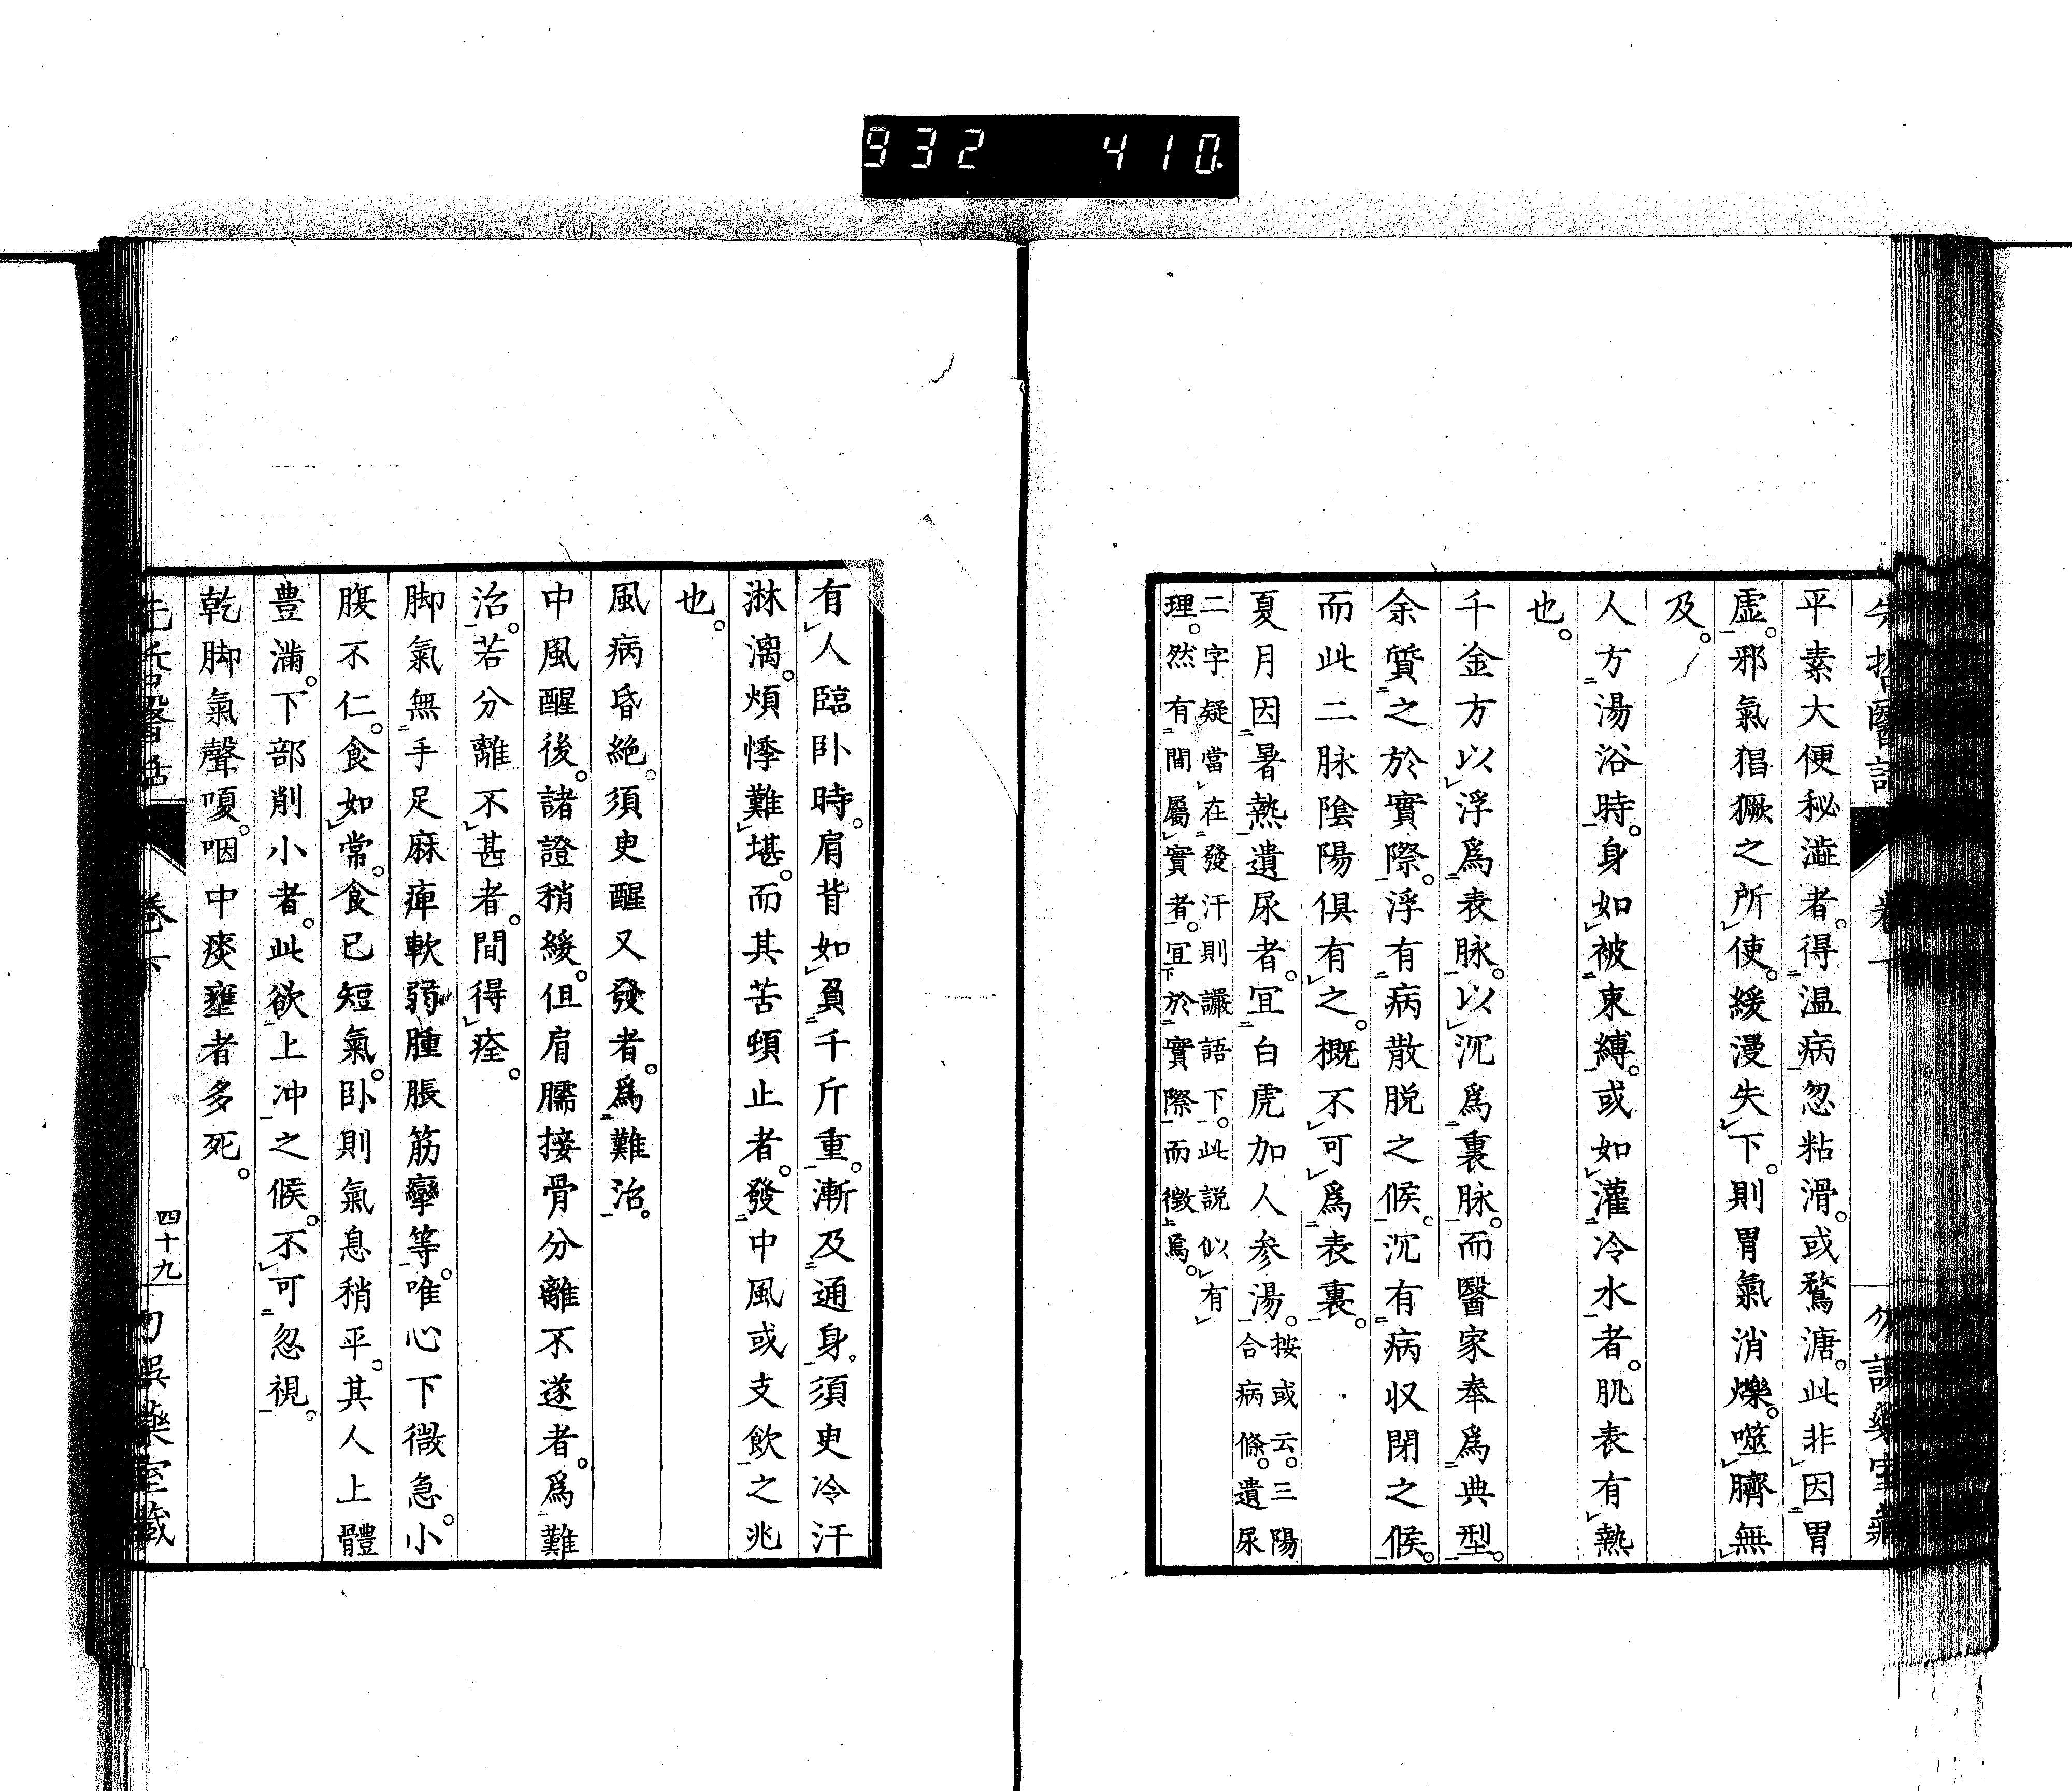 932 410.
平素大便秘澁者。得温病忽粘滑。或鶩溏。此非因胃
虚。邪氣猖獗之所使。緩漫失下。則胃氣消爍。噬臍無
及。
人方湯浴時。身如被束縛。或如灌冷水者。肌表有熱
也。
千金方以浮爲表脉。以沉爲裏脉。而醫家奉爲典型。
余質之於實際。浮有病散脱之候。沉有病收閉之候。
而此二脉陰陽俱有之。概不可爲表裏。
夏月因暑熱遺尿者。宜白虎加人参湯。
按或云。三陽
合病條。遺尿
二字疑當在發汗則讝語下。此説似有
理。然有間屬實者。宜於實際而徴焉。
有人臨卧時。肩背如負千斤重。漸及通身。須臾冷汗
淋漓。煩悸難堪。而其苦頓止者。發中風或支飲之兆
也。
風病昏絶。須臾醒又發者。爲難治。
中風醒後。諸證稍緩。但肩臑接骨分離不遂者。爲難
治。若分離不甚者。間得痊。
脚氣無手足麻痺軟弱腫脹筋攣等。唯心下微急。小
腹不仁。食如常。食已短氣。卧則氣息稍平。其人上體
豊滿。下部削小者。此欲上冲之候。不可忽視。
乾脚氣聲嗄。咽中痰壅者多死。
醫話
卷下
四十九
藥室藏